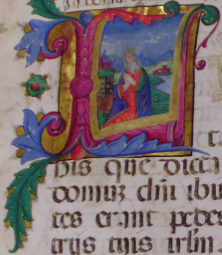 L
his que dicta
domuz dni ibi
tes erant pedes
atrijs tuis irlm